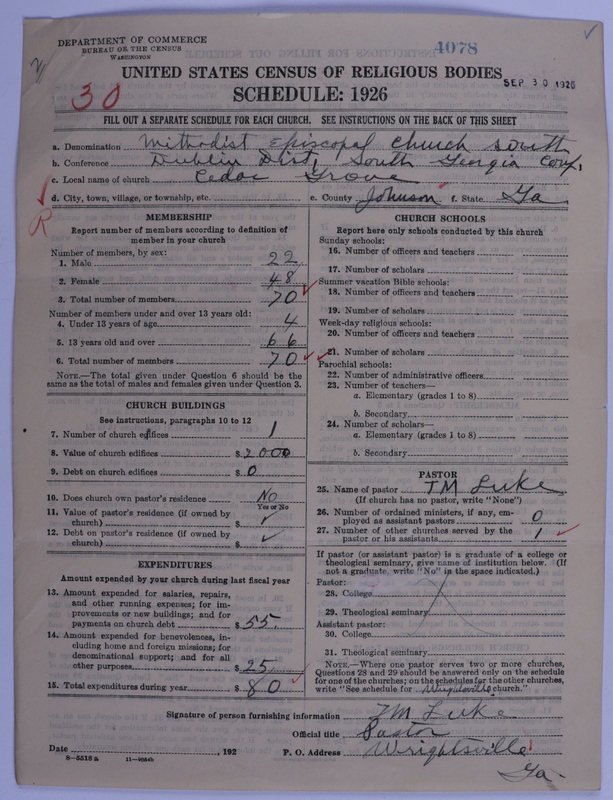 DEPARTMENT OF COMMERCE
BUREAU OF THE CENSUS
WASHINGTON
4078
UNITED STATES CENSUS OF RELIGIOUS BODIES
SEP 30 1926
30
SCHEDULE: 1926
FILL OUT A SEPARATE SCHEDULE FOR EACH CHURCH. SEE INSTRUCTIONS ON THE BACK OF THIS SHEET
a. Denomination Methodist Episcopal Church South
b. Conference Dublin Dist, South Georgia Conf,
c. Local name of church Cedar Grove
d. City, town, village, or township, etc. e. County Johnson f. State Ga
R
MEMBERSHIP
Report number of members according to definition of
member in your church
Number of members, by sex:
1. Male 22
2. Female 48
3. Total number of members 70
Number of members under and over 13 years old:
4. Under 13 years of age 4
5. 13 years old and over 66
6. Total number of members 70
NOTE.—The total given under Question 6 should be the
same as the total of males and females given under Question 3.
CHURCH BUILDINGS
See instructions, paragraphs 10 to 12
7. Number of church edifices 1
8. Value of church edifices $2000
9. Debt on church edifices $0
10. Does church own pastor's residence No
Yes or No
11. Value of pastor's residence (if owned by
church) $ ✓
12. Debt on pastor's residence (if owned by
church) $ ✓
EXPENDITURES
Amount expended by your church during last fiscal year
13. Amount expended for salaries, repairs,
and other running expenses; for im-
provements or new buildings; and for
payments on church debt $55.
14. Amount expended for benevolences, in-
cluding home and foreign missions; for
denominational support; and for all
other purposes $25
15. Total expenditures during year $80
CHURCH SCHOOLS
Report here only schools conducted by this church
Sunday schools:
16. Number of officers and teachers
17. Number of scholars
Summer vacation Bible schools:
18. Number of officers and teachers
19. Number of scholars
Week-day religious schools:
20. Number of officers and teachers
21. Number of scholars
Parochial schools:
22. Number of administrative officers
23. Number of teachers—
a. Elementary (grades 1 to 8)
b. Secondary
24. Number of scholars—
a. Elementary (grades 1 to 8)
b. Secondary
PASTOR
25. Name of pastor TM Luke
(If church has no pastor, write "None")
26. Number of ordained ministers, if any, em-
ployed as assistant pastors 0
27. Number of other churches served by the
pastor or his assistants 1
If pastor (or assistant pastor) is a graduate of a college or
theological seminary, give name of institution below. (If
not a graduate, write "No" in the space indicated.)
Pastor:
28. College
29. Theological seminary
Assistant pastor:
30. College
31. Theological seminary
NOTE.—Where one pastor serves two or more churches,
Questions 28 and 29 should be answered only on the schedule
for one of the churches; on the schedules for the other churches,
write "See schedule for Wrightsville church."
Signature of person furnishing information TM Luke
Official title Pastor
Date , 192 P. O. Address Wrightsville
Ga.
8—5518a 11—9054b